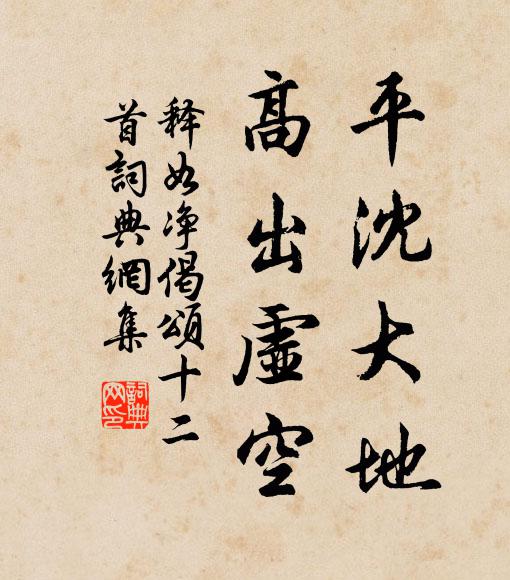 平沈大地
高出虛空
释如净偈頌十二
首詞典網集
詞典
网印